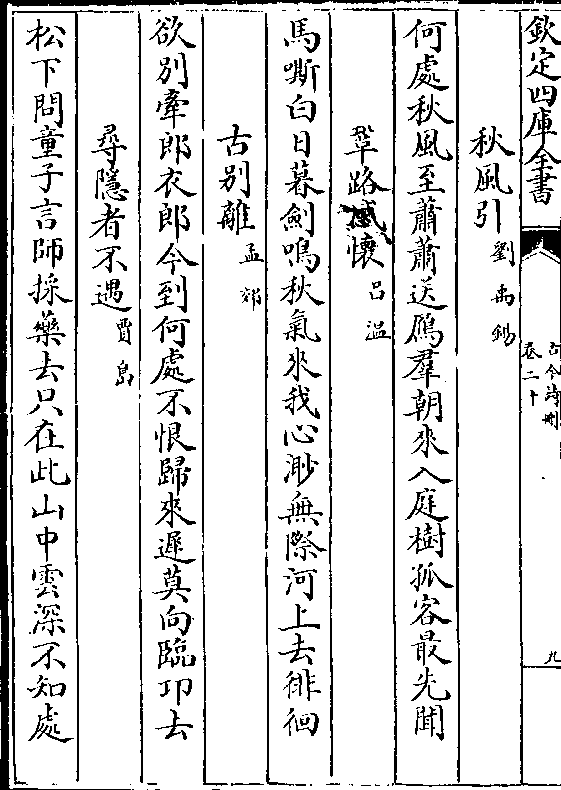 欽定四庫全書
古今詩刪
卷二十
九
秋風引 劉禹錫
何處秋風至蕭蕭送鴈羣朝來入庭樹孤客最先聞
鞏路感懷 呂溫
馬嘶白日暮劍鳴秋氣來我心渺無際河上去徘徊
古別離 孟郊
欲別牽郎衣郎今到何處不恨歸來遲莫向臨卭去
尋隱者不遇 賈島
松下問童子言師採藥去只在此山中雲深不知處